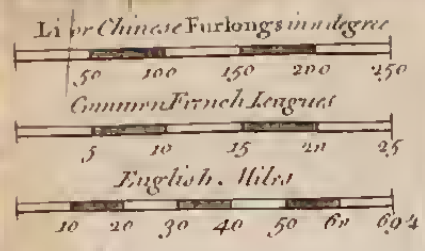 Li or Chinese Furlongs in a degree
50 100 150 200 250
Common French Leagues
5 10 15 20 25
English Miles
10 20 30 40 50 60 69 4